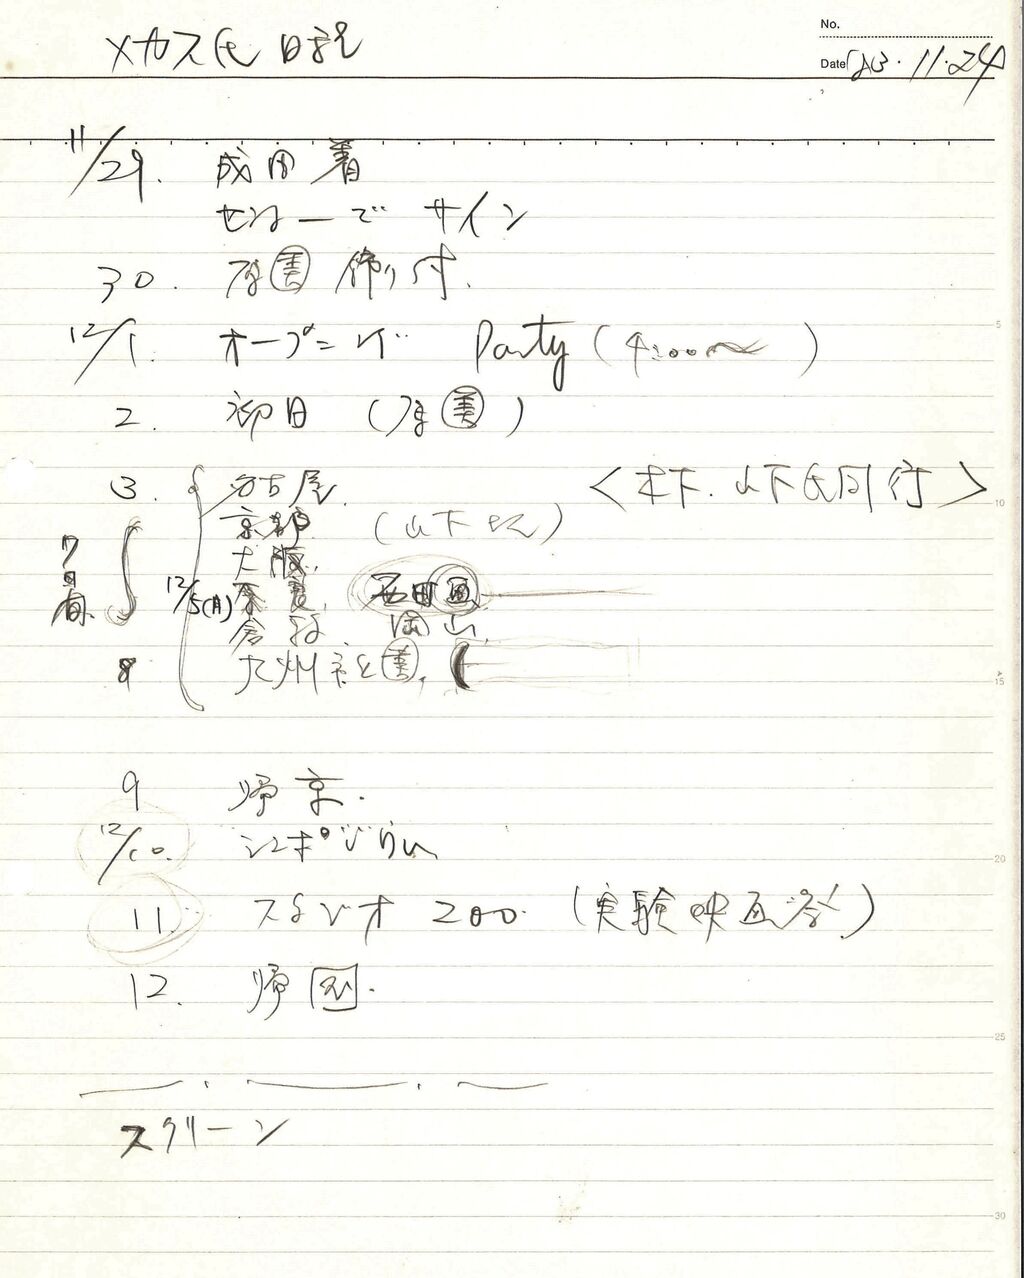 メカス氏日記
No.
Date '83.11.24
11/29. 成田着
センターでサイン
30. 原美 飾り付.
12/1. オープニング Party (4:00〜 )
2. 初日 (原美)
3. 名古屋. <木下.山下氏同行>
京都. (山下氏)
大阪.
7日間.
12/5(月) 奈良. 西田画
倉敷. 岡山.
8 九州 美,
9 帰京.
12/10. シンポジウム
11. スタジオ200. (実験映画祭)
12. 帰国.
スクリーン
5
10
15
20
25
30